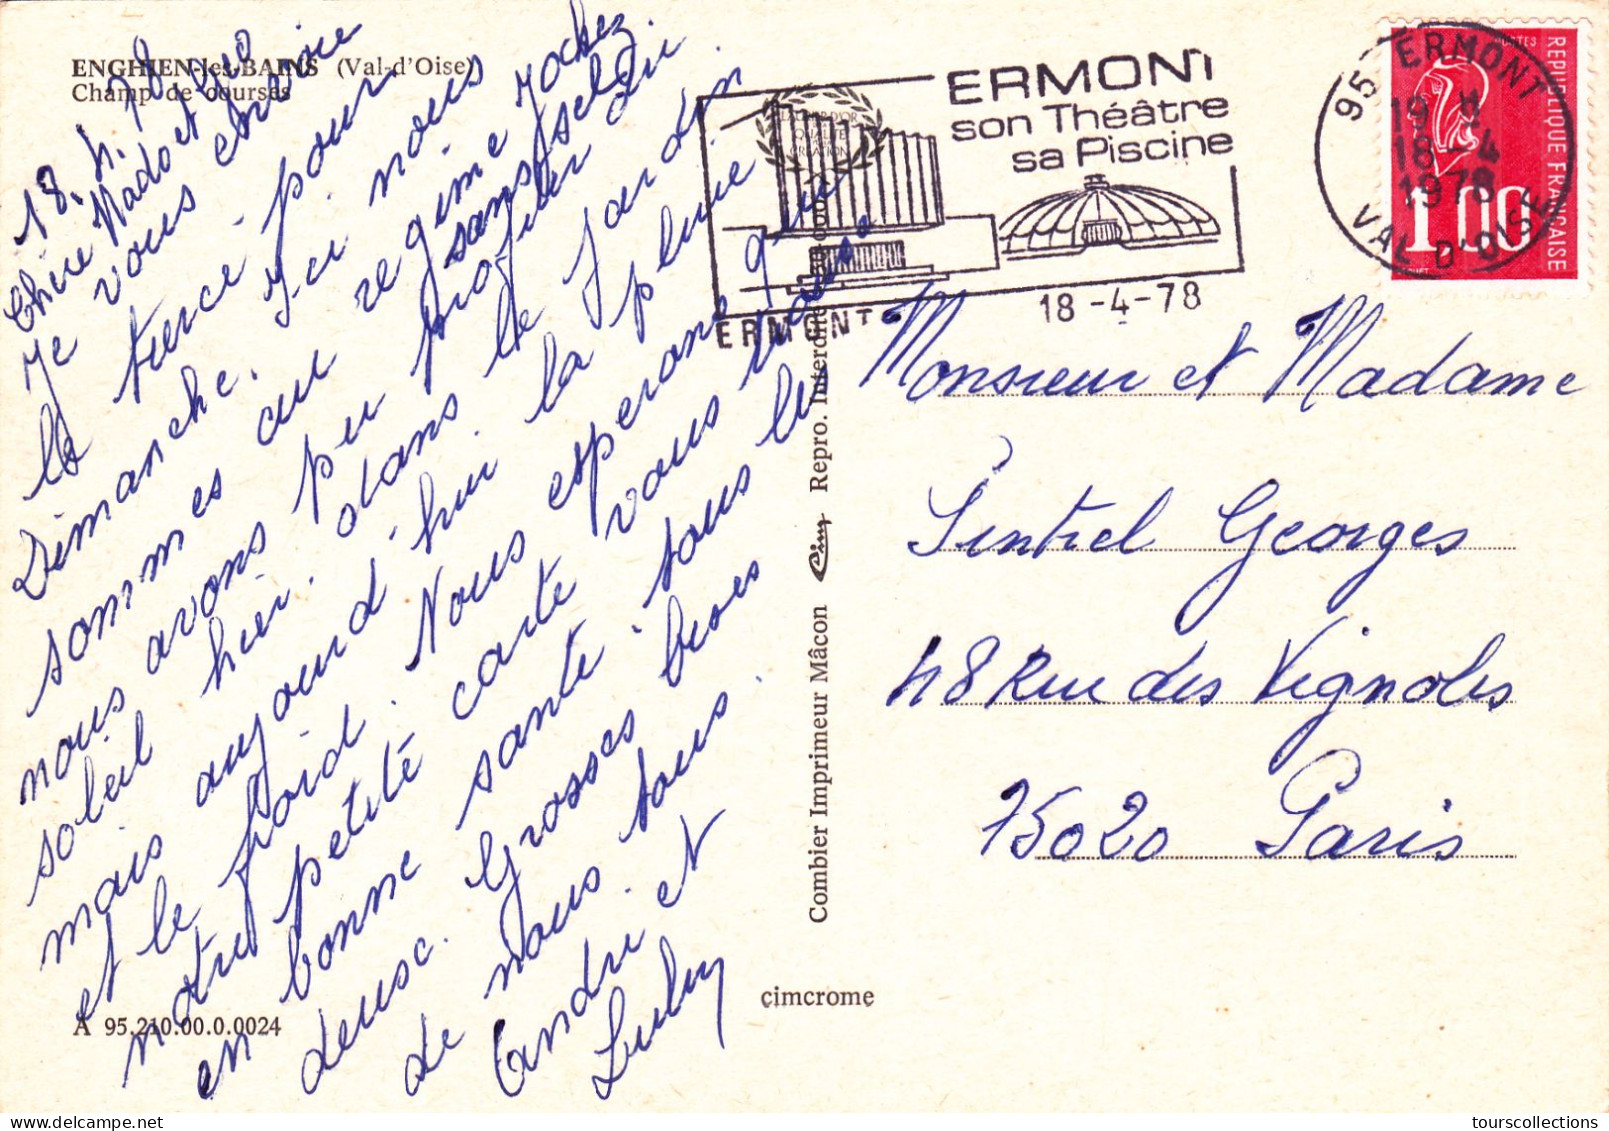 ENGHIEN-les-BAINS (Val-d'Oise)
Champ de courses
18. 4. 78
Chère Mado et Géo
Je vous envoie
le tiercé pour
Dimanche. Ici nous
sommes au régime jockey
sans sel
nous avons pu profiter du
soleil hier. dans le Jardin
mais aujourd'hui la pluie
et le froid. Nous esperons que
notre petite carte vous trouve
en bonne santé tous les
deux. Grosses bises
de nous tous.
André et
Lulu
A 95.210.00.0.0024
cimcrome
Combier Imprimeur Mâcon Cim Repro. Interdite
LA CHOPE D'OR
QUALITÉ
CRÉATION
ERMONT
son Théâtre
sa Piscine
ERMONT
18-4-78
95 ERMONT
19 H
18-4
1978
VAL D'OISE
POSTES
REPUBLIQUE FRANÇAISE
1.00
Monsieur et Madame
Pintrel Georges
48 Rue des Vignoles
75020 Paris
tourscollections